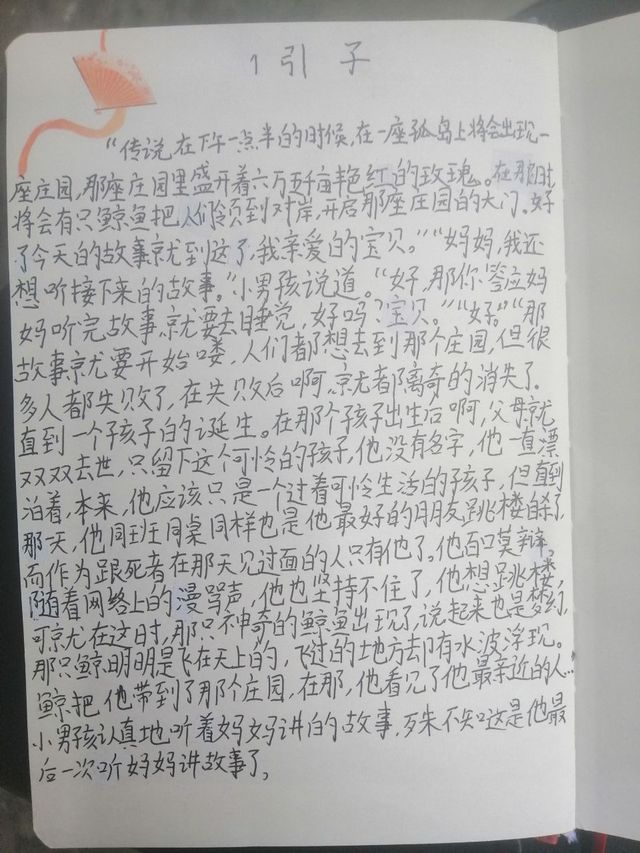 1 引子
“传说在下午一点半的时候,在一座孤岛上将会出现一
座庄园,那座庄园里盛开着六万五千亩艳红的玫瑰。在那时
将会有只鲸鱼把人们领到对岸,开启那座庄园的大门。好
了今天的故事就到这了,我亲爱的宝贝。”“妈妈,我还
想听接下来的故事。”小男孩说道。“好,那你答应妈
妈听完故事就要去睡觉,好吗?宝贝。”“好。”“那
故事就要开始喽,人们都想去到那个庄园,但很
多人都失败了,在失败后啊,就都离奇的消失了。
直到一个孩子的诞生。在那个孩子出生后啊,父母就
双双去世,只留下这个可怜的孩子,他没有名字,他一直漂
泊着,本来,他应该只是一个过着可怜生活的孩子,但直到
那一天,他同班同桌同样也是他最好的朋友跳楼自杀了,
而作为跟死者在那天见过面的人只有他了。他百口莫辩。
随着网络上的漫骂声,他也坚持不住了,他想跳楼,
可就在这时,那只神奇的鲸鱼出现了,说起来也是梦幻,
那只鲸明明是飞在天上的,飞过的地方却有水波浮现。
鲸把他带到了那个庄园,在那,他看见了他最亲近的人...”
小男孩认真地听着妈妈讲的故事,殊不知这是他最
后一次听妈妈讲故事了。